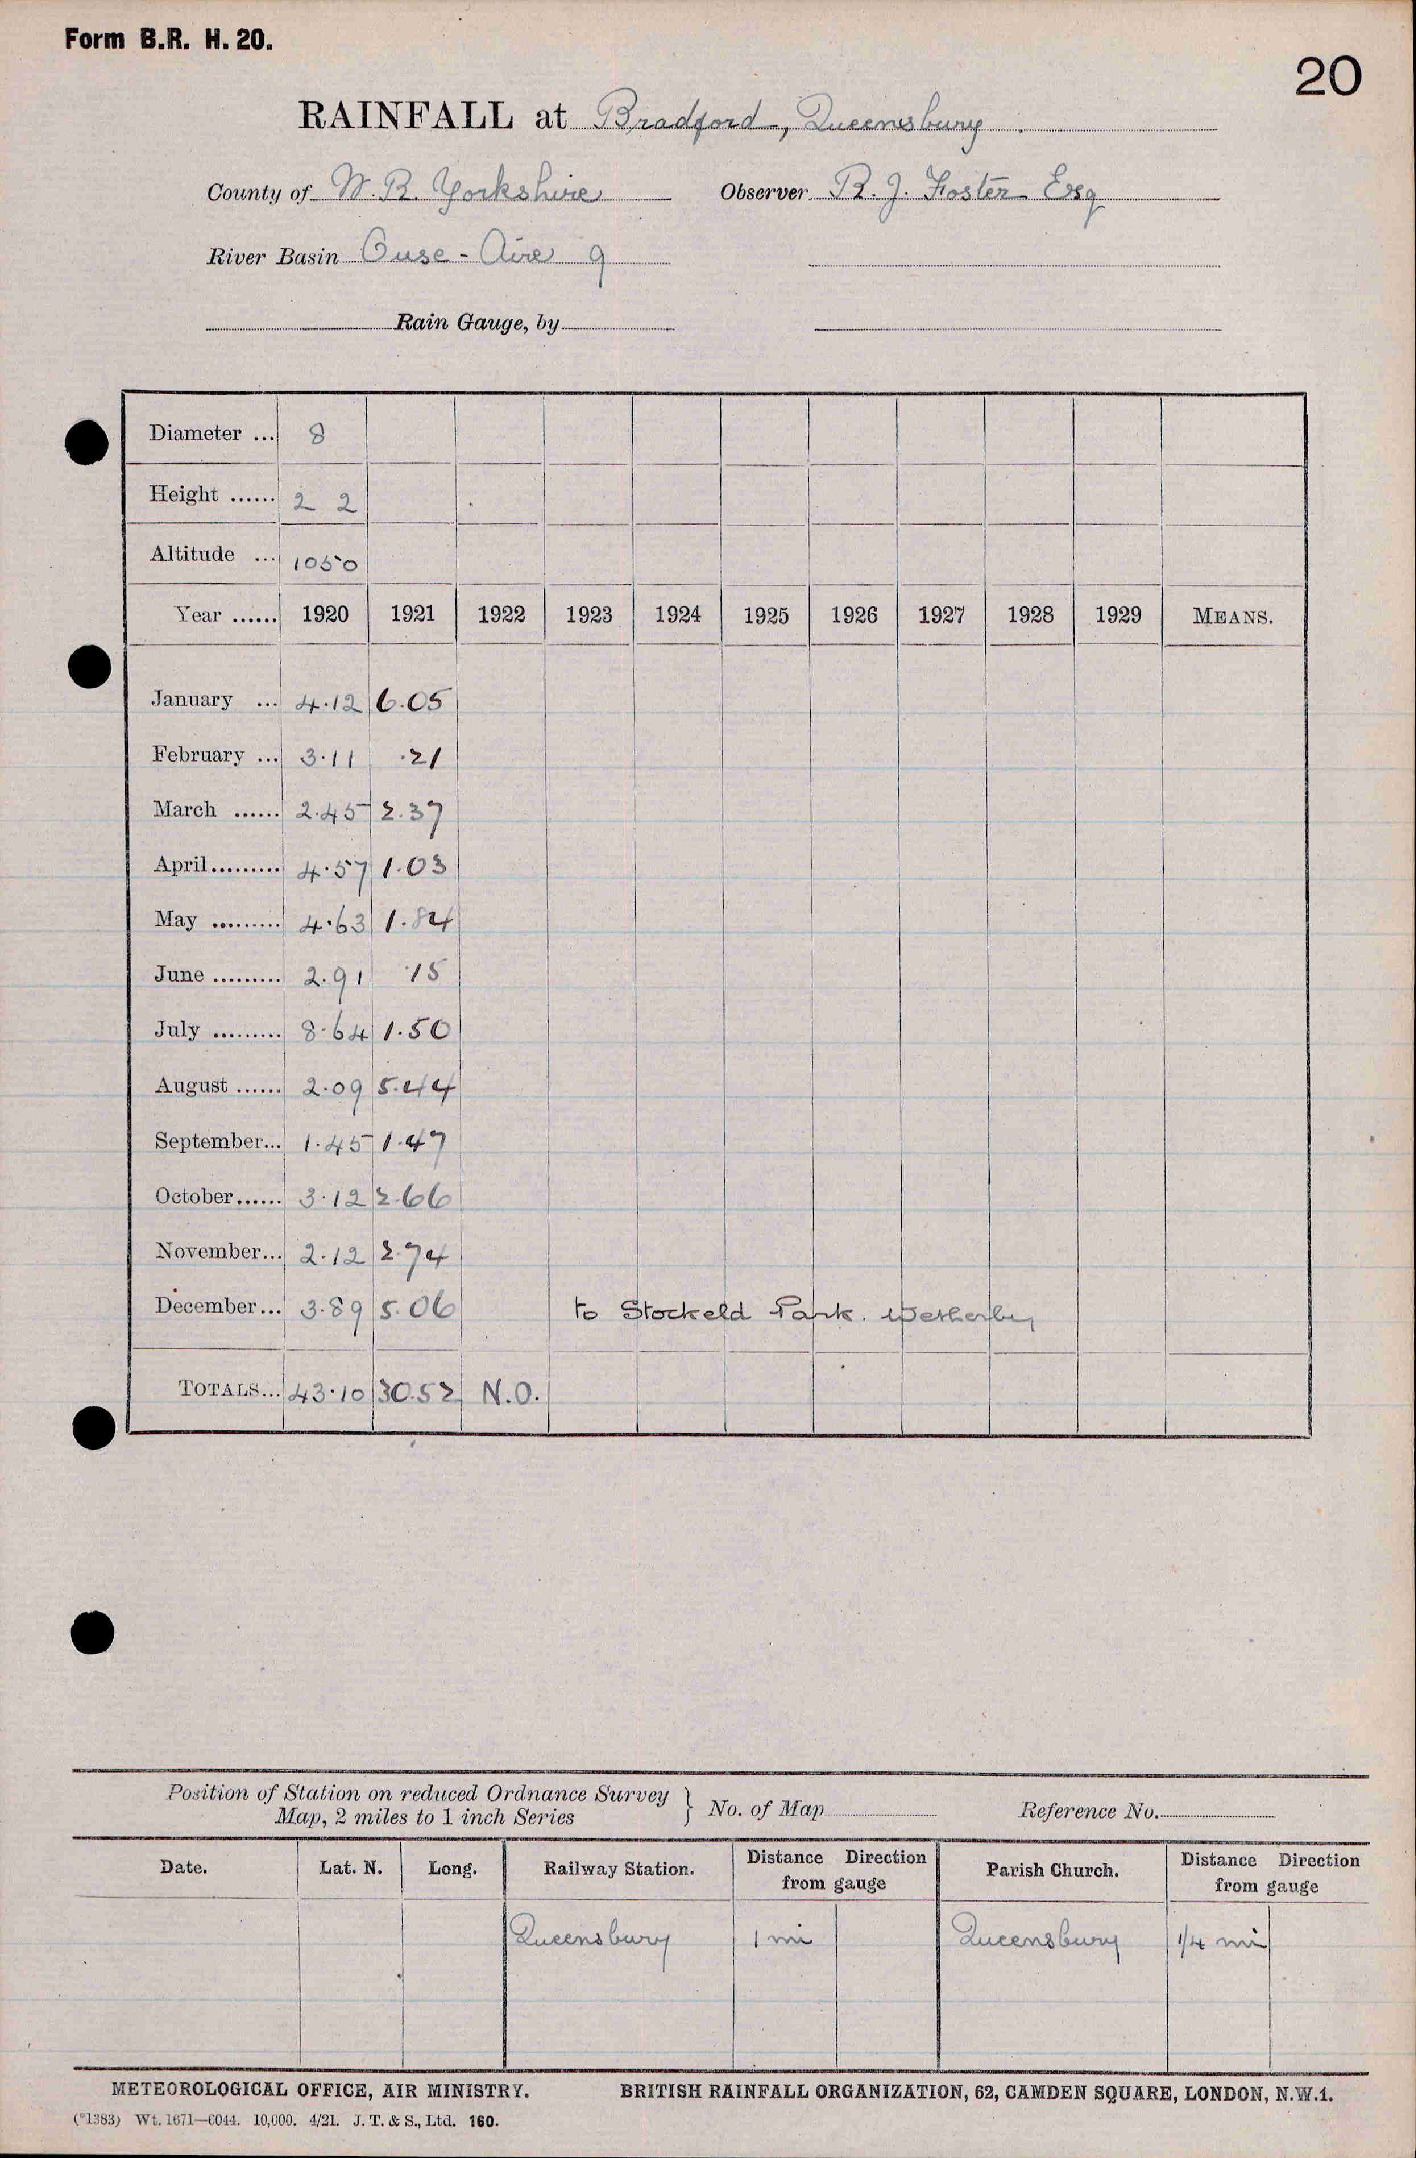 Form B.R. H. 20.
20
RAINFALL at Bradford, Queensbury
County of W. R. Yorkshire Observer R. J. Foster Esq
River Basin Ouse - Aire 9
Rain Gauge, by
Diameter ... 8
Height ...... 2 2
Altitude ... 1050
Year ...... 1920 1921 1922 1923 1924 1925 1926 1927 1928 1929 MEANS.
January ... 4.12 6.05
February ... 3.11 .21
March ...... 2.45 2.37
April......... 4.57 1.03
May ......... 4.63 1.84
June ......... 2.91 .15
July ......... 8.64 1.50
August ...... 2.09 5.44
September... 1.45 1.47
October...... 3.12 2.66
November... 2.12 2.74
December... 3.89 5.06 to Stockeld Park. Wetherby
TOTALS... 43.10 30.52 N.O.
Position of Station on reduced Ordnance Survey
Map, 2 miles to 1 inch Series } No. of Map Reference No.
Date. Lat. N. Long. Railway Station. Distance Direction from gauge Parish Church. Distance Direction from gauge
Queensbury 1 mi Queensbury 1/4 mi
METEOROLOGICAL OFFICE, AIR MINISTRY. BRITISH RAINFALL ORGANIZATION, 62, CAMDEN SQUARE, LONDON, N.W.1.
(*1383) Wt. 1671—6044. 10,000. 4/21. J. T. & S., Ltd. 160.